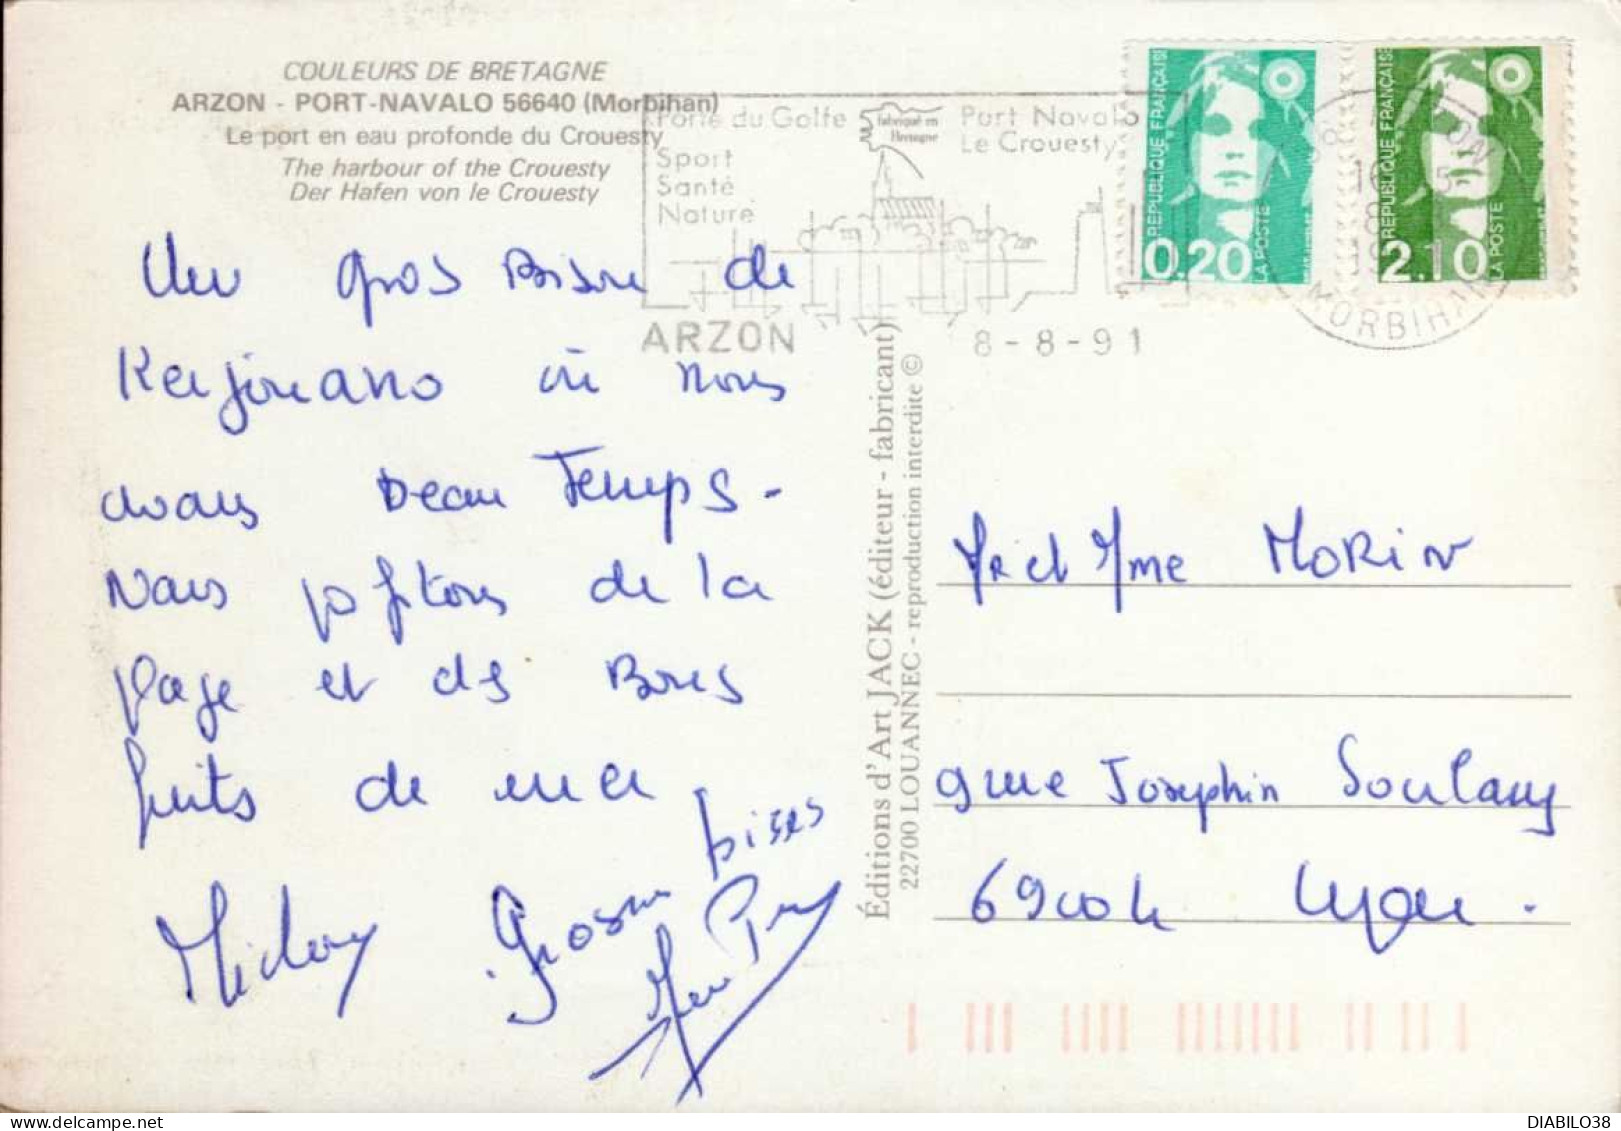 COULEURS DE BRETAGNE
ARZON - PORT-NAVALO 56640 (Morbihan)
Le port en eau profonde du Crouesty
The harbour of the Crouesty
Der Hafen von le Crouesty
Porte du Golfe
Sport
Santé
Nature
fabriqué en
Bretagne
Port Navalo
Le Crouesty
ARZON
8-8-91
MORBIHAN
REPUBLIQUE FRANÇAISE
0,20
LA POSTE
REPUBLIQUE FRANÇAISE
2,10
LA POSTE
Un gros Bisou de
Kerjouano où nous
avons beau Temps -
Nous profitons de la
plage et des Bons
fruits de mer.
Grosses bisses
Éditions d'Art JACK (éditeur - fabricant)
22700 LOUANNEC - reproduction interdite ©
Mr et Mme MORIN
9 rue Josephin Soulary
69004 Lyon.
DIABILO38